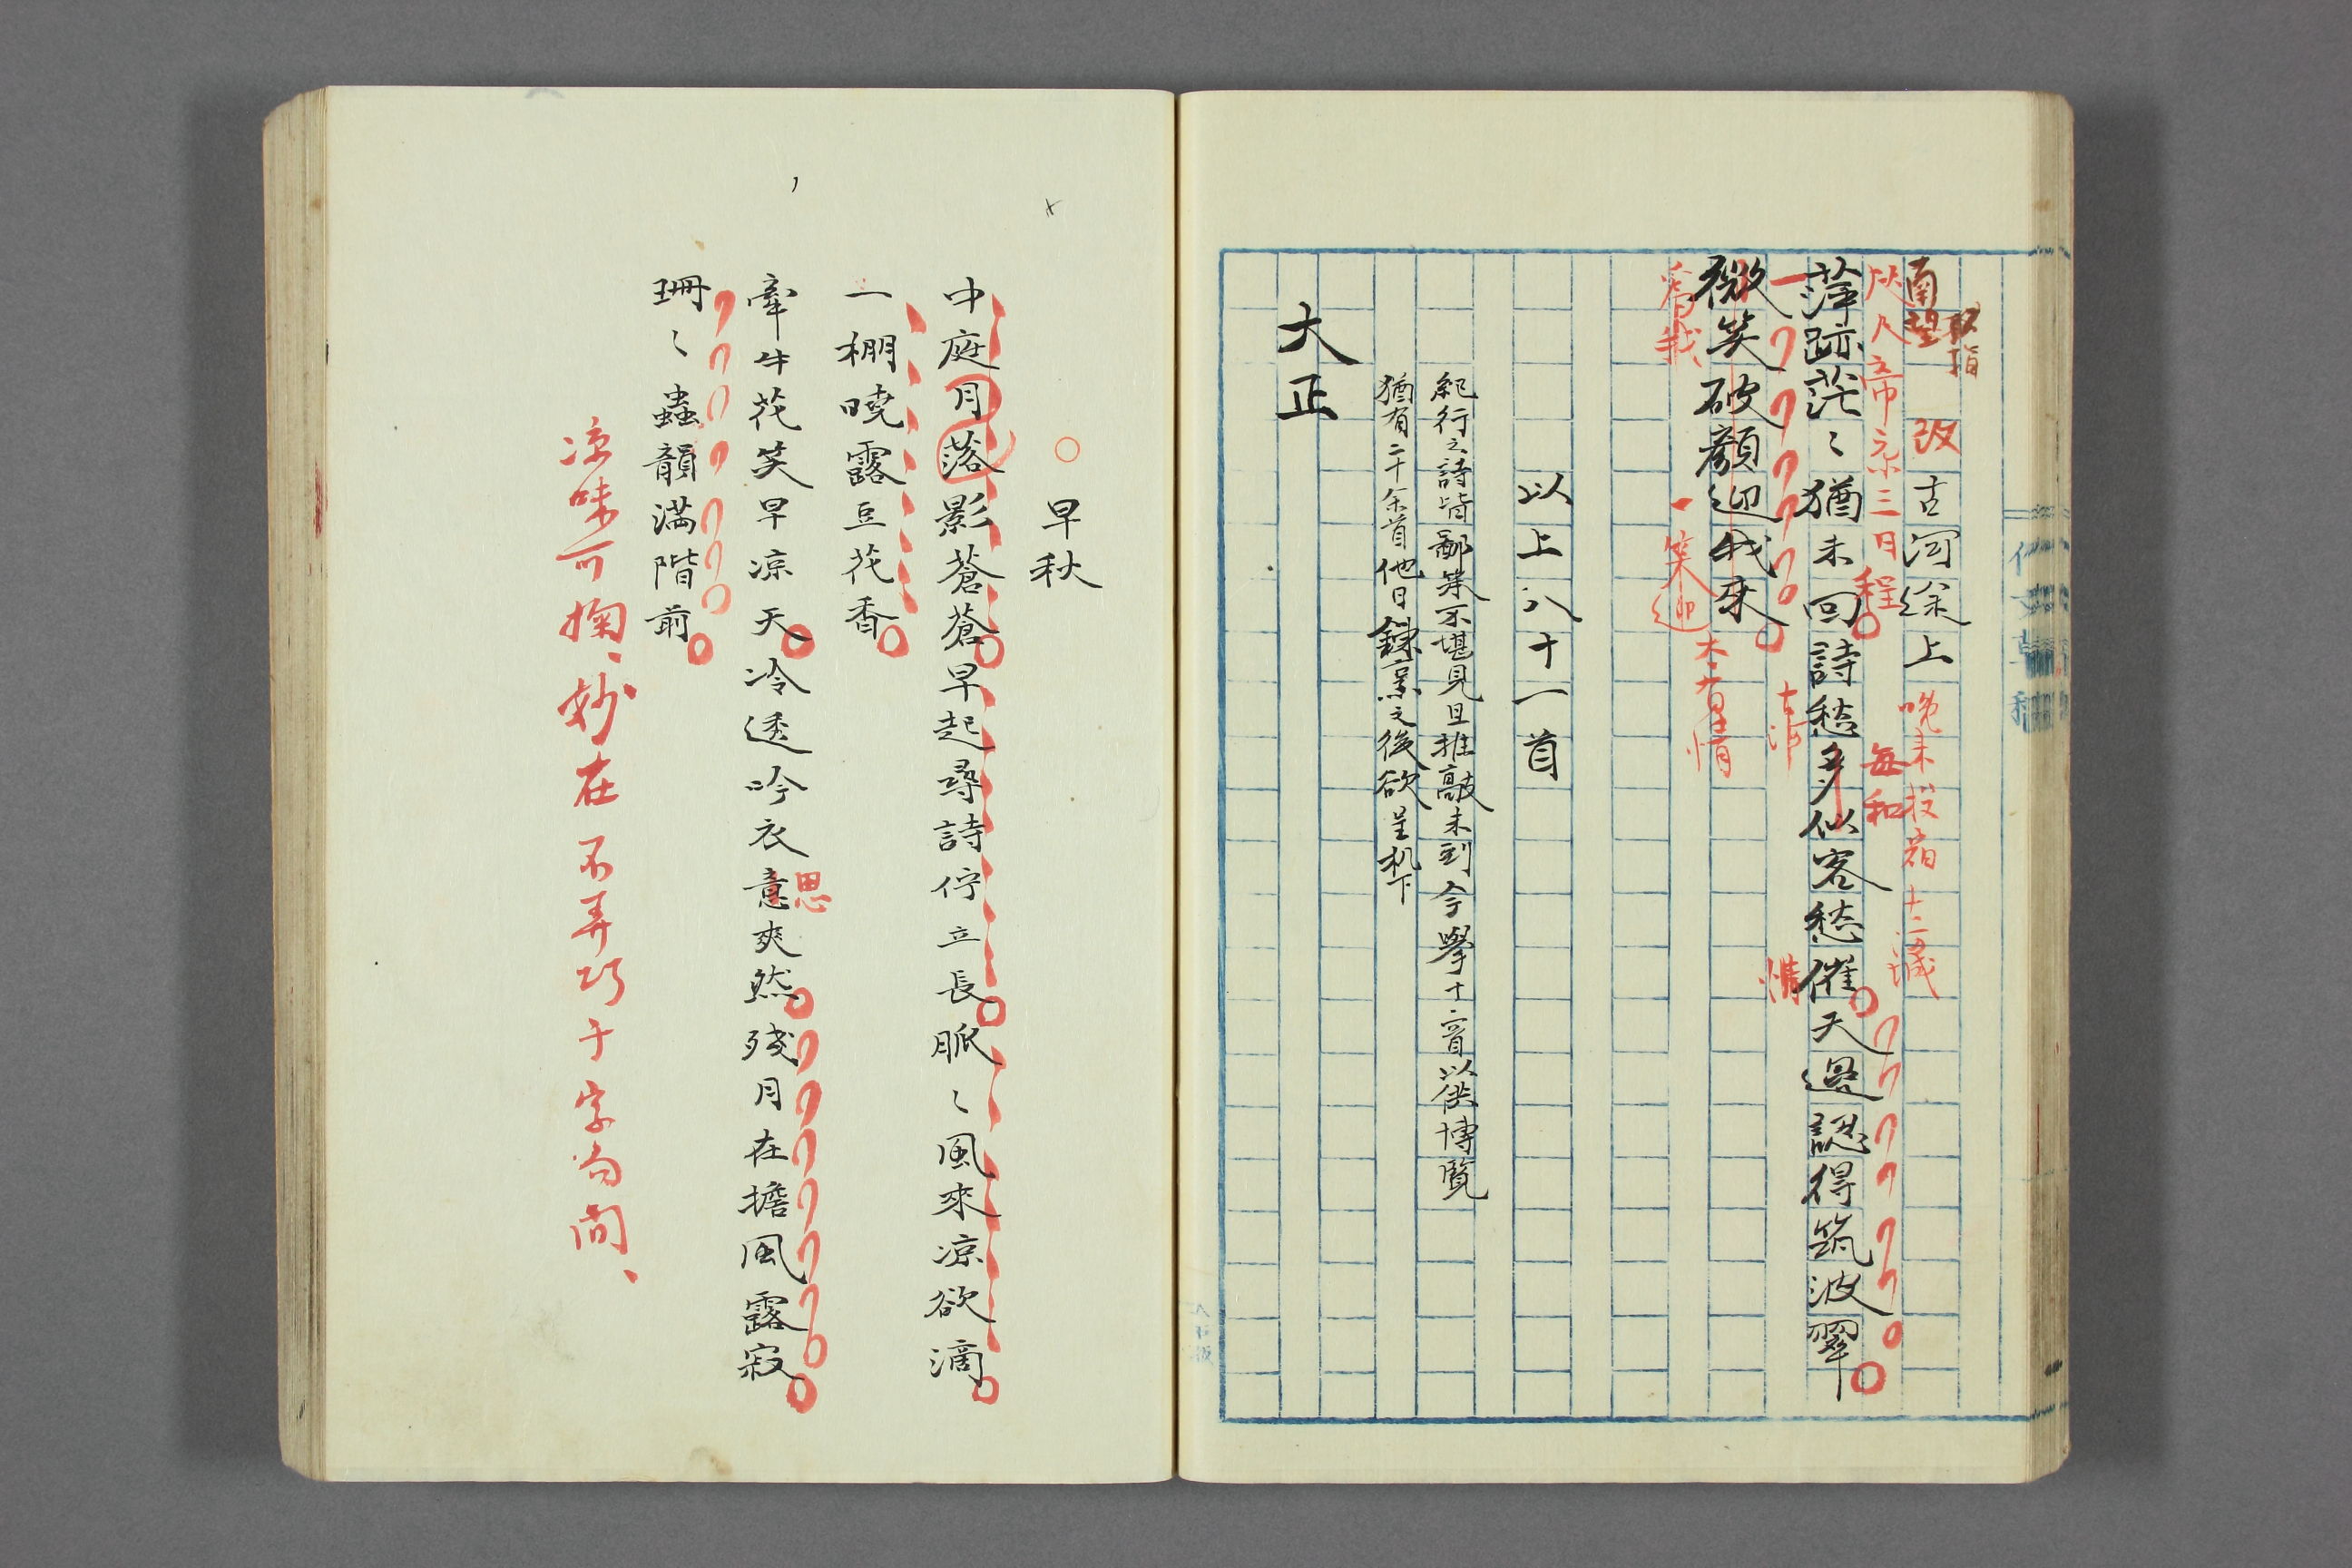 南望
改 古河途上
萍跡茫〻猶未回詩愁多似客愁催天邊認得筑波翠
微笑破顔迎我来
程
每和
情
一笑迎
為我
以上八十一首
紀行之詩皆鄙策不堪見且推敲未到今擧十二首以供博覧
猶有二十余首他日録稾之後欲呈机下
大正
早秋
中庭月落影蒼蒼早起尋詩佇立長脈〻風來凉欲滴
一棚曉露豆花香
牽牛花笑早凉天冷透吟衣意爽然残月在擔風露寂
思
珊〻蟲韻満階前
凉味可掬、妙在不弄巧于字句間、